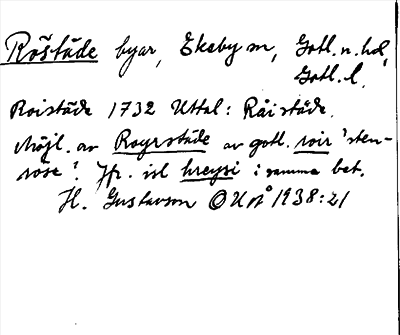 Röstäde byar, Eksby sn, Gotl. n. hd,
Gotl. l.
Roistäde 1732 Uttal: Råistäde.
Möjl. av Royrstäde av gotl. roir 'sten-
röse'. Jfr. isl hreysi i samma bet.
H. Gustavson OUÅ 1938:21